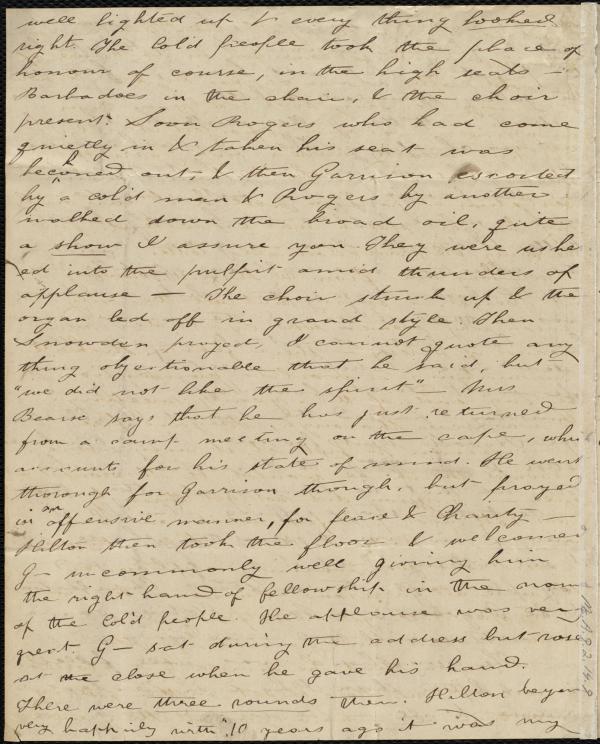 well lighted up & every thing looked
right. The Cold people took the place of
honour of course, in the high seats —
Barbadoes in the chair, & the choir
present. Soon Rogers who had come
quietly in & taken his seat was
beckoned out, & then Garrison escorted
by a cold man & Rogers by another
walked down the broad oil, quite
a show I assure you. They were ushe
ed into the pulpit amid thunders of
applause — The choir struck up & the
organ led off in grand style. Then
Snowden prayed, I cannot quote any
thing objectionable that he said, but
"we did not like the spirit" — Mrs
Bearse says that he has just returned
from a camp meeting on the cape, who
accounts for his state of mind. He went
thorough for Garrison though, but prayed
in an offensive manner, for Peace & Charity —
Hilton then took the floor & welcomed
G— uncommonly well giving him
the right hand of fellowship in the name
of the Cold people. The applause was very
great. G— sat during the address but rose
at the close when he gave his hand.
There were three rounds then. Hilton began
very happily with "10 years ago it was my